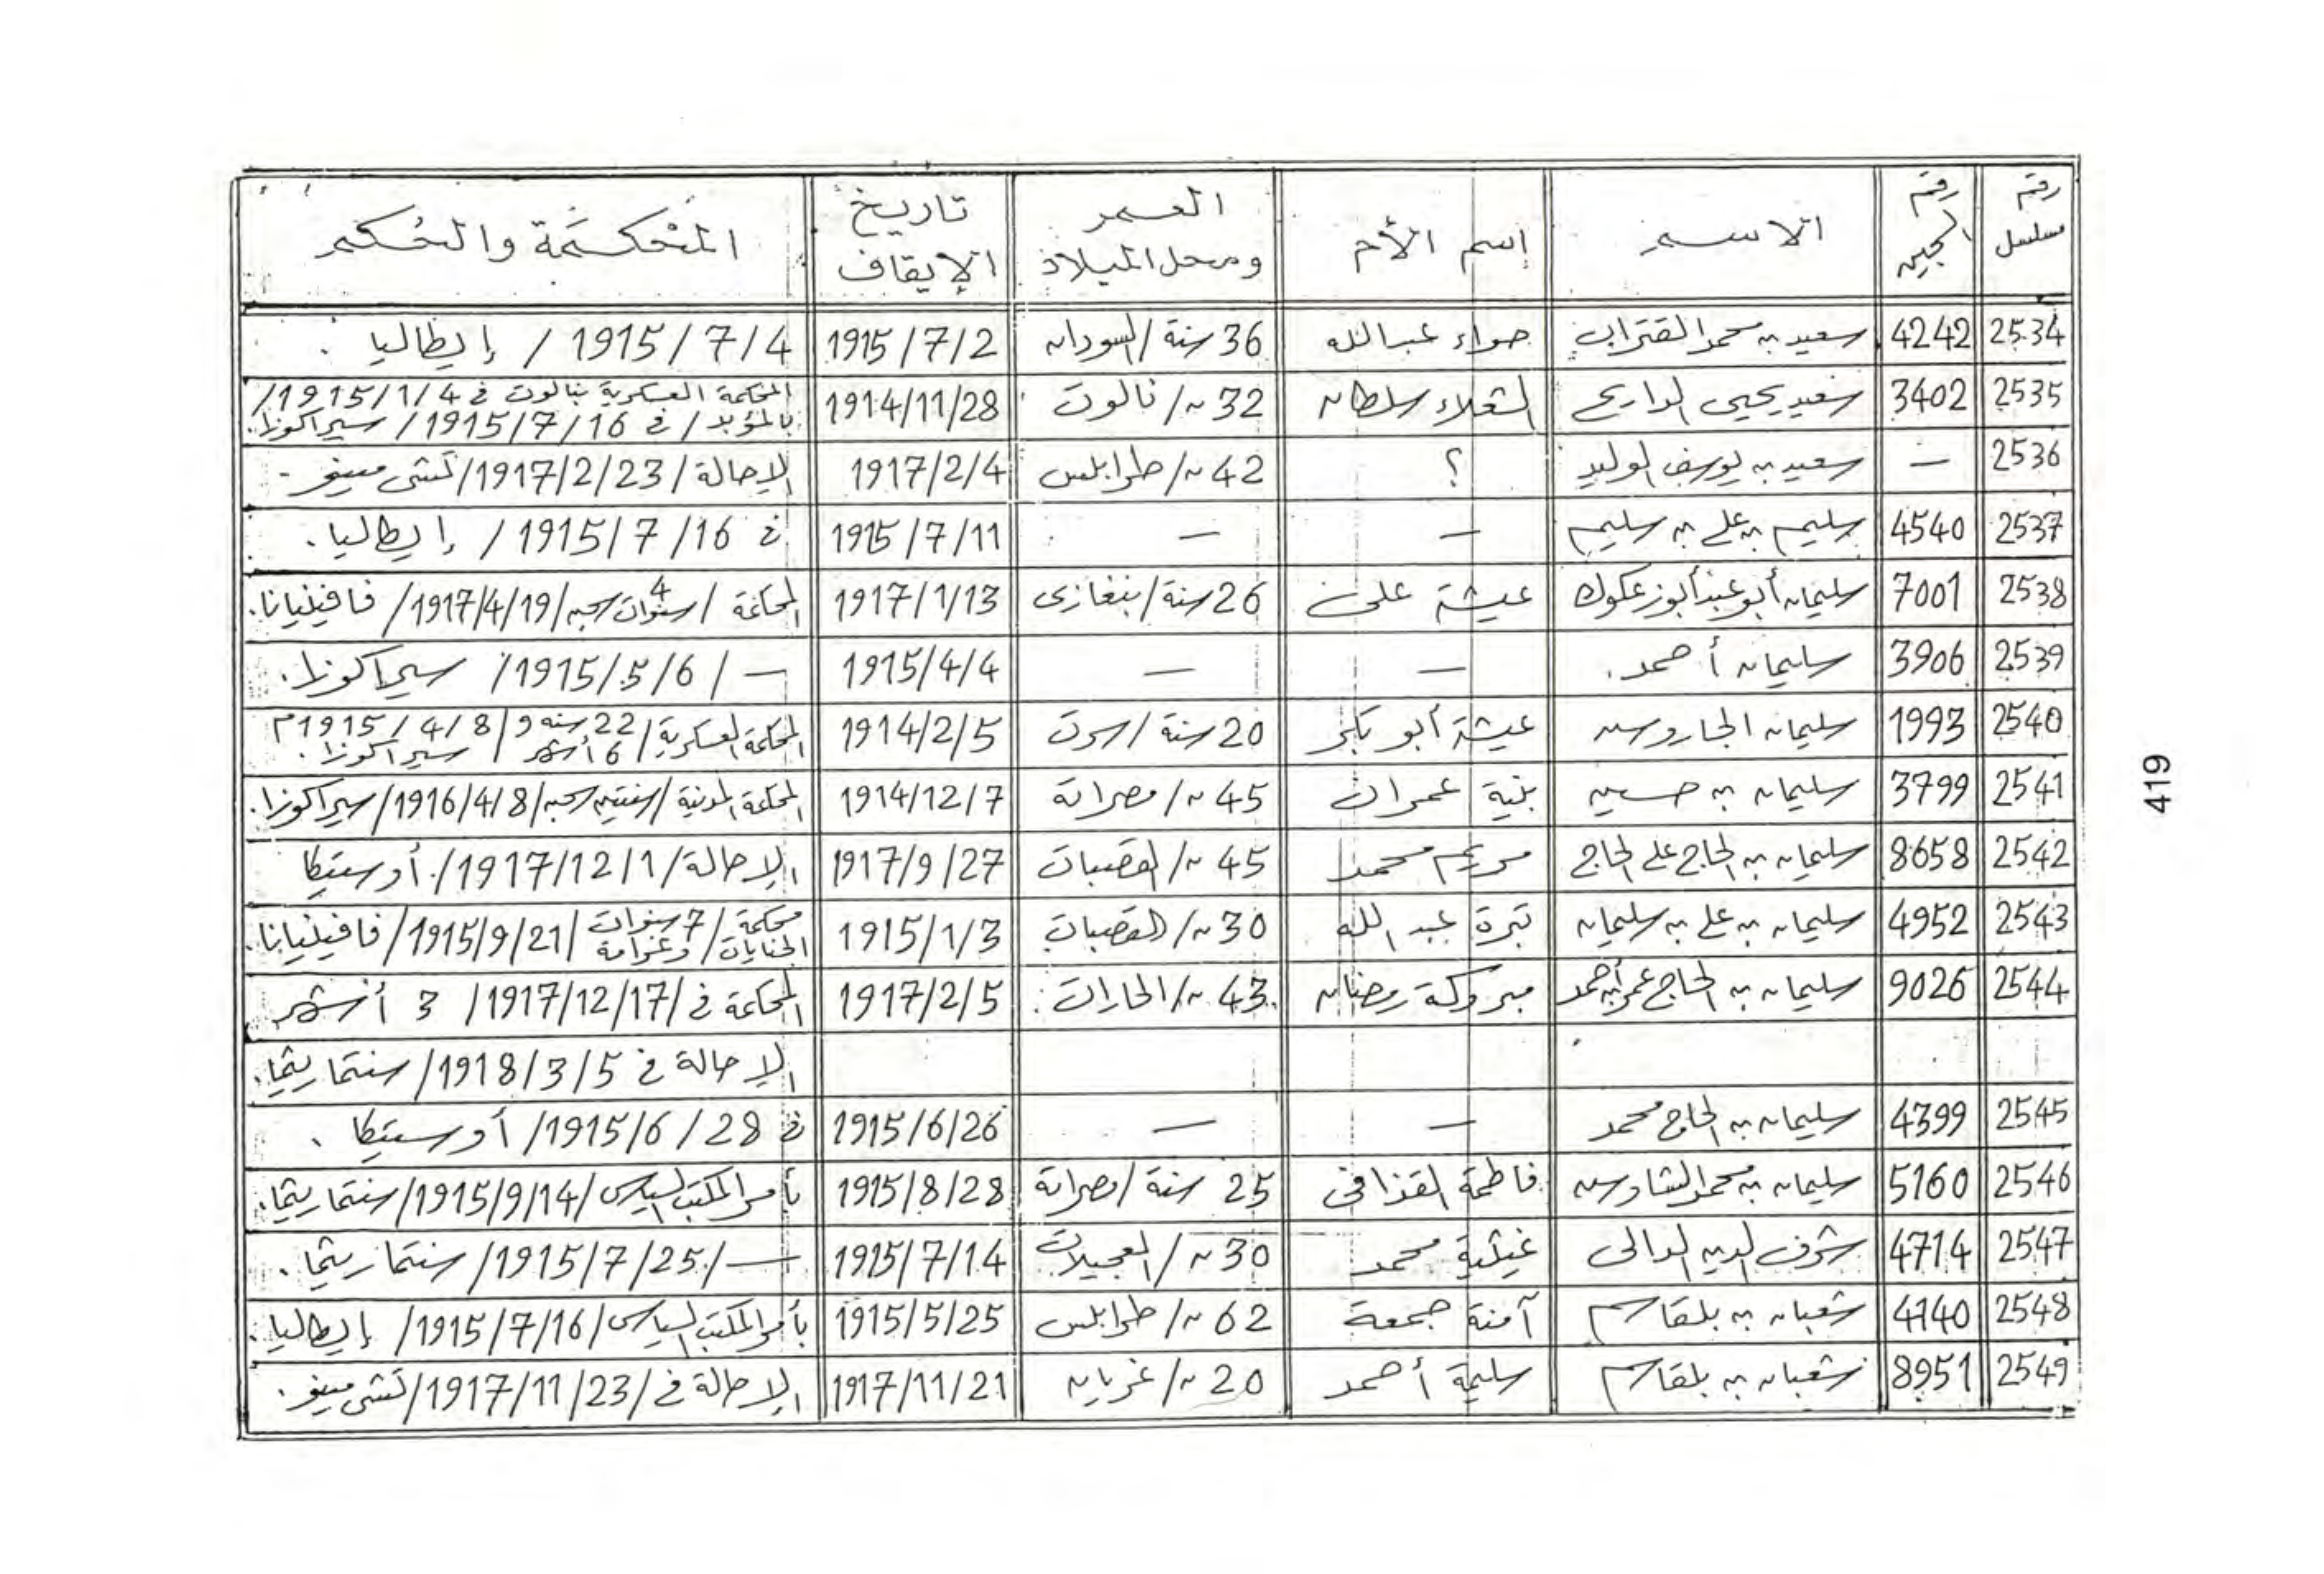 رقم مسلسل رقم السجين الاسم إسم الأم العمر ومحل الميلاد تاريخ الإيقاف المحكمة والحكم
2534 4242 سعيد بن محمد 36 سنة / السودان حواء عبد الله 1915/7/2 1915/7/4 / إيطاليا .
2535 3402 سعيد يحيى سلطان 32 ~ / نالوت 1914/11/28 المحكمة العسكرية بنالوت في 1915/1/4 /
بالمؤبد / في 1915/7/16 / سيراكوزا .
2536 — سعيد بن يوسف الوليد ؟ 42 ~ / طرابلس 1917/2/4 الإحالة / 1917/2/23 /
2537 4540 سليم بن علي بن سليم — — 1915/7/11 في 1915/7/16 / إيطاليا .
2538 7001 سليمان أبو عكوك عيشة علي 26 سنة / بنغازي 1917/1/13 المحاكمة / 4 سنوات سجن / 1917/4/19 / فافينيانا .
2539 3906 سليمان أحمد . — — 1915/4/4 — / 1915/5/6 / سيراكوزا .
2540 1993 سليمان عيشة أبو بكر 20 سنة / سرت 1914/2/5 المحكمة العسكرية / 22 سنة و 6 أشهر / 1915/4/8 م
سيراكوزا .
2541 3799 سليمان بن حسين بنية عمران 45 ~ / مصراتة 1914/12/7 المحكمة المدنية / سنتين سجن / 1916/4/8 / سيراكوزا .
2542 8658 سليمان بن الحاج علي الحاج مريم محمد 45 ~ / القصبات 1917/9/27 الإحالة / 1917/12/1 / أوستيكا
2543 4952 سليمان بن علي بن سليمان تبرة عبد الله 30 ~ / القصبات 1915/1/3 محكمة الجنايات / 7 سنوات وغرامة / 1915/9/21 / فافينيانا .
2544 9026 سليمان بن الحاج عمر بن أحمد مبروكة رمضان 43 ~ / الحارات 1917/2/5 المحاكمة في / 1917/12/17 / 3 أشهر
الإحالة في 1918/3/5 /
2545 4399 سليمان بن الحاج محمد — — 1915/6/26 في 1915/6/28 / أوستيكا .
2546 5160 سليمان بن محمد فاطمة القذافي 25 سنة / مصراتة 1915/8/28 بأمر المكتب السياسي / 1915/9/14 /
2547 4714 شرف الدين الوالي محمد 30 ~ / العجيلات 1915/7/14 — / 1915/7/25 /
2548 4140 شعبان بن بلقاسم آمنة جمعة 62 ~ / طرابلس 1915/5/25 بأمر المكتب السياسي / 1915/7/16 / إيطاليا .
2549 8951 شعبان بن بلقاسم سليمة أحمد 20 ~ / غريان 1917/11/21 الإحالة في / 1917/11/23 /
419